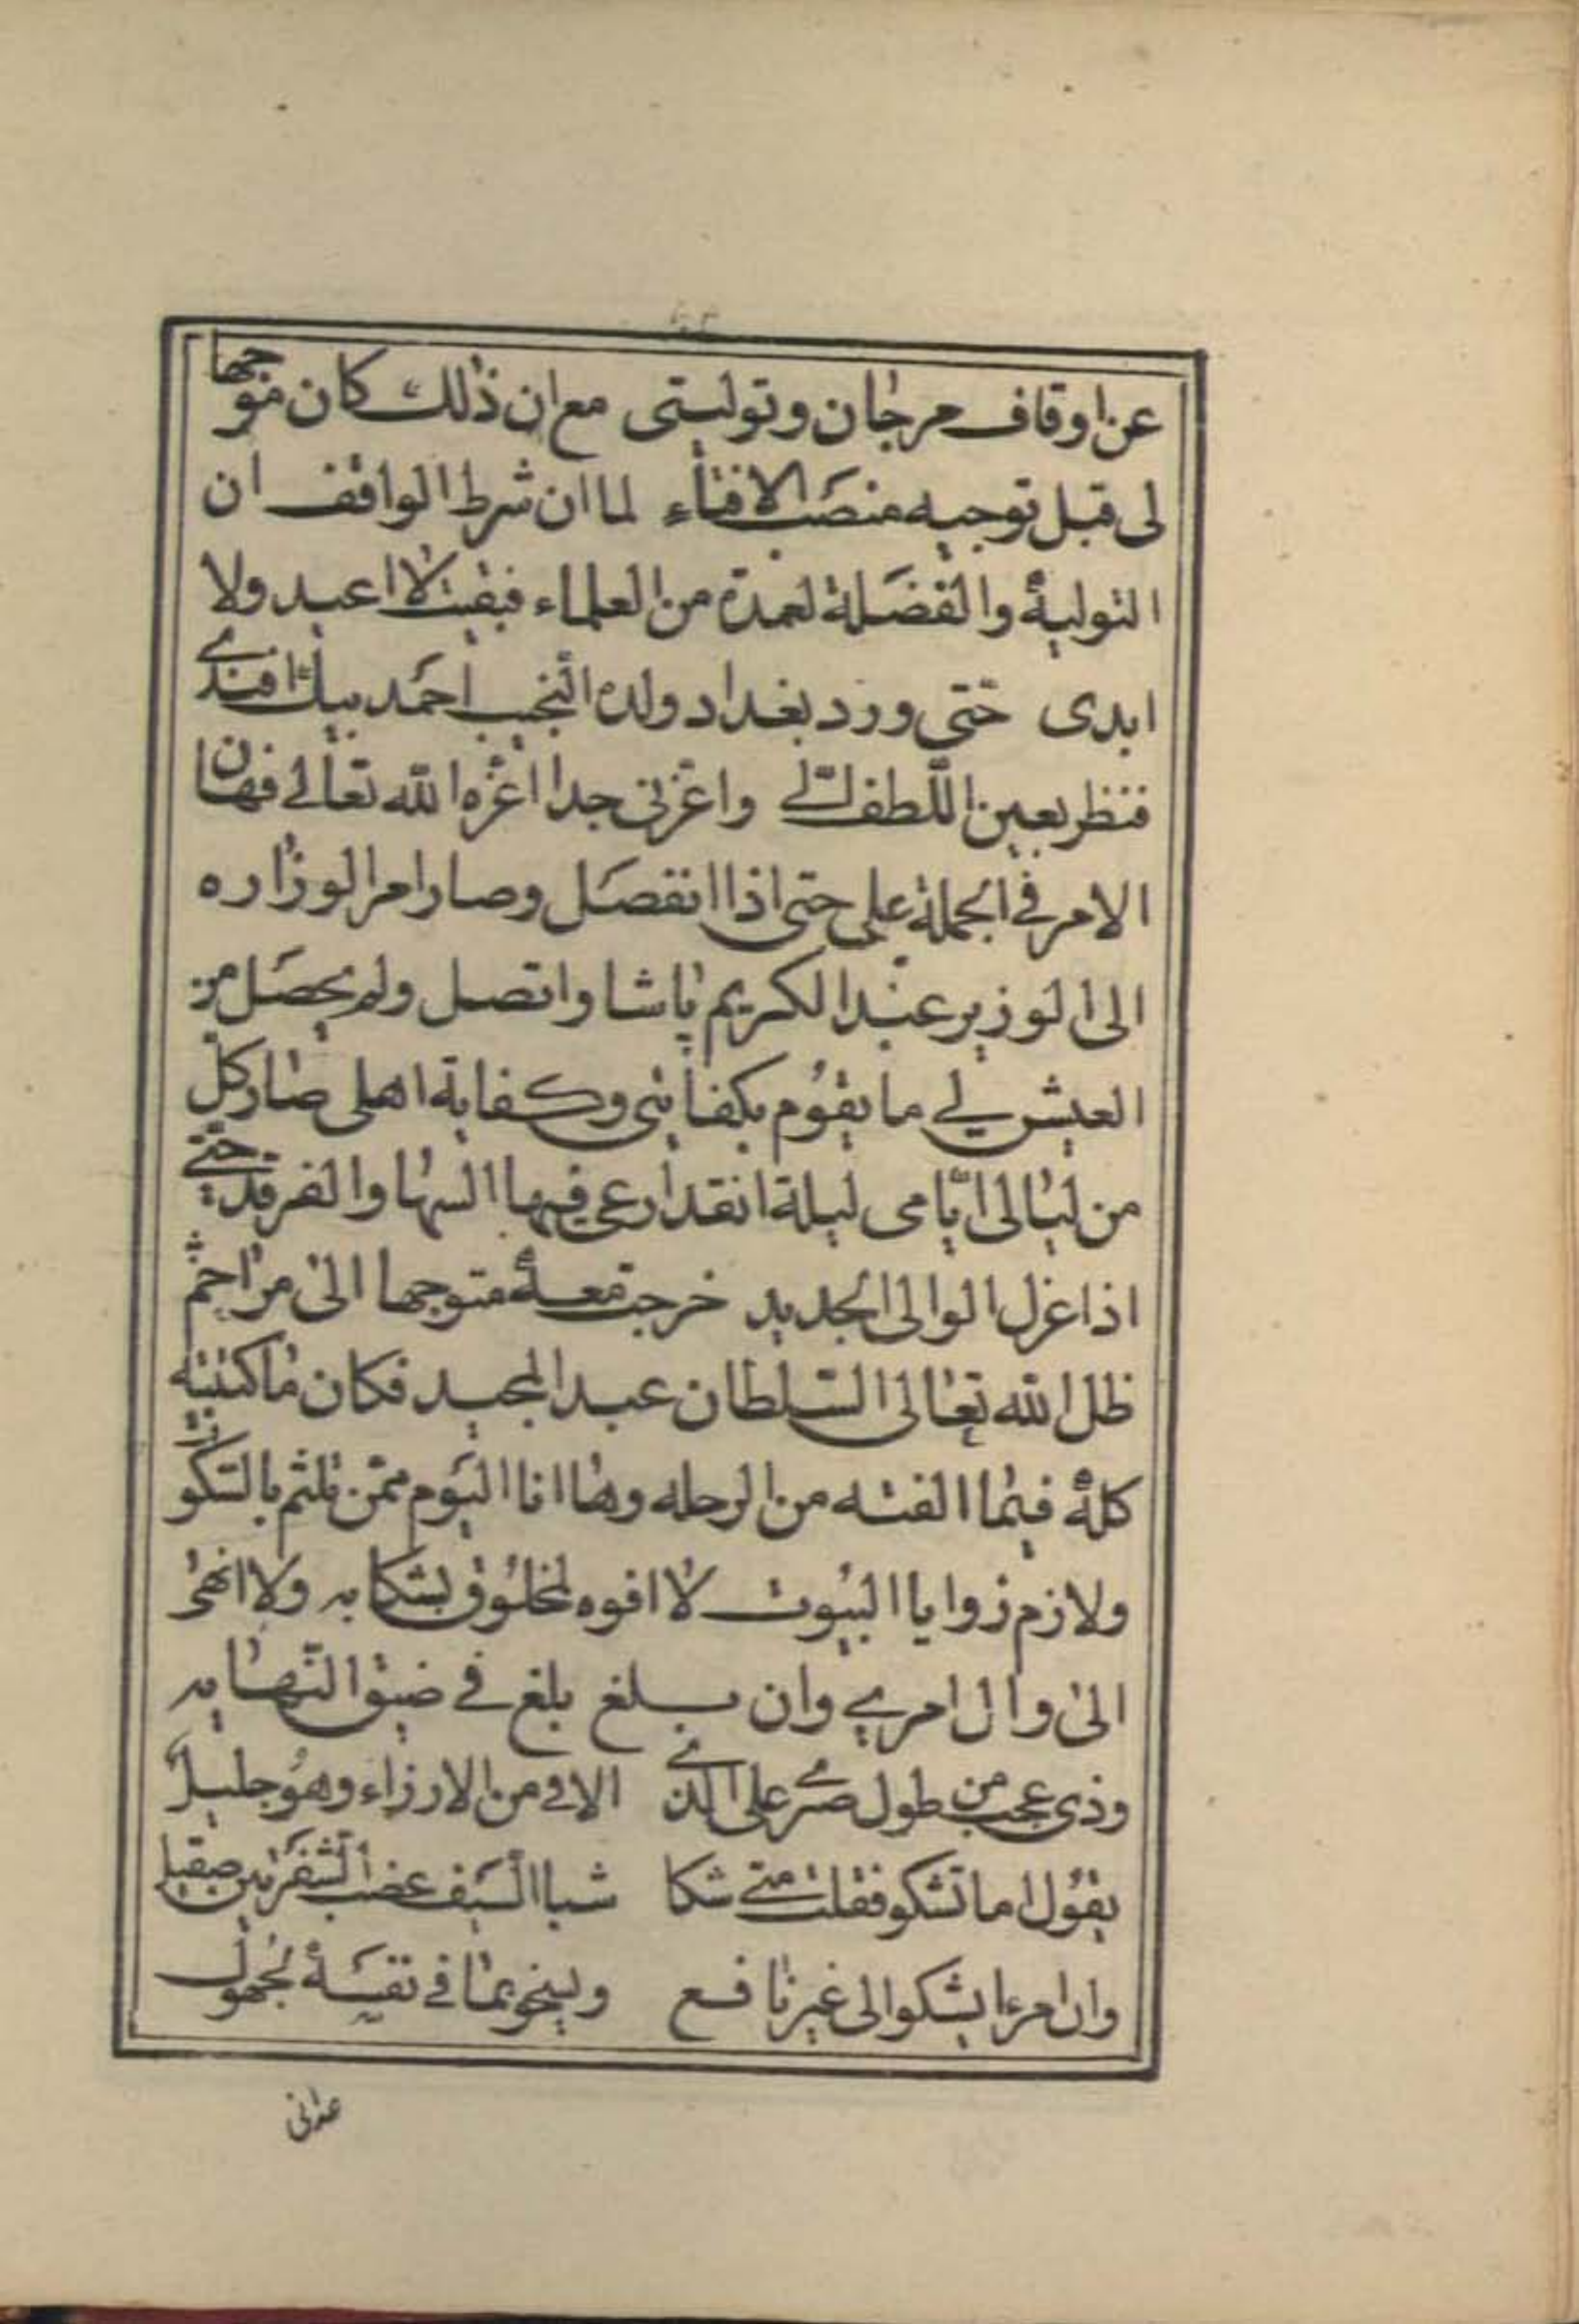 عن اوقاف مرجان وتوليتى مع ان ذلك كان موجها
لى قبل توجيه منصب الافتاء لما ان شرط الواقف ان
التولية والفضلة لعمدة من العلماء فبقيت لا اعيد ولا
ابدى حتى ورد بغداد ولده النجيب احمد بيك افندى
فنظر بعين اللطف الى واعزنى جدا اعزه الله تعالى فهان
الامر فى الجملة على حتى اذا انفصل وصار امر الوزاره
الى الوزير عبد الكريم پاشا واتصل ولم يحصل من
العيش لى ما يقوم بكفايتى وكفاية اهلى صار كل
من ليالى ايامى ليلة انقد ارعى فيها السها والفرقد حتى
اذا عزل الوالى الجديد خرجت معه متوجها الى مراحم
ظل الله تعالى السلطان عبد المجيد فكان ما كتبته
كله فيما الفته من الرحله وها انا اليوم ممن تلثم بالسكوت
ولازم زوايا البيوت لا افوه لمخلوق بشكايه ولا انهى
الى وال امرى وان بلغ بلغ فى ضيق النهايه
وذى عجب من طول صبرى على الذى الاقى من الارزاء وهو جليل
يقول اما تشكو فقلت متى شكا شبا السيف عضب الشفرتين صقيل
وان امرءا يشكو الى غير نافع ويسخو بما فى نفسه لجهول
عدانى